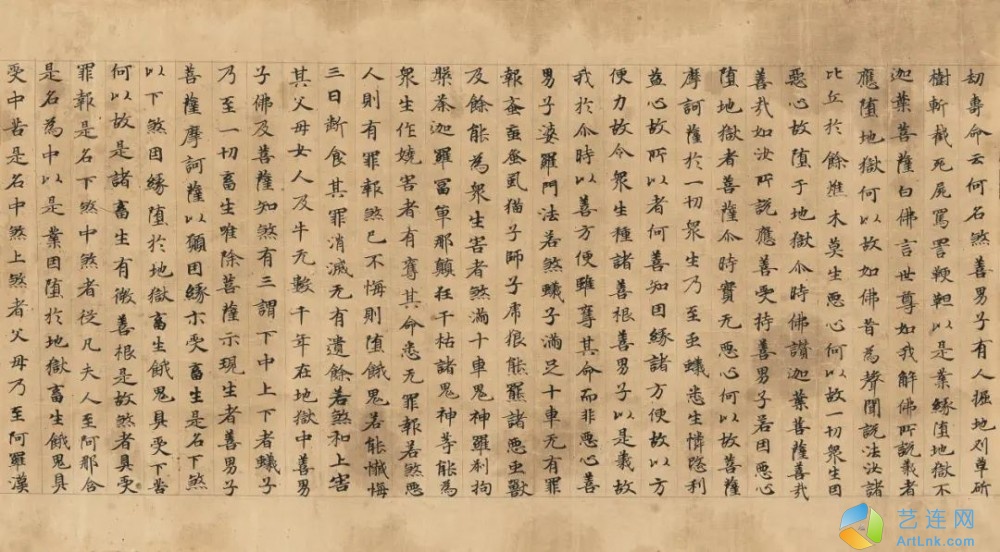 劫壽命云何名煞善男子有人掘地刈草斫
樹斬截死屍罵詈鞭靼以是業緣墮地獄不
迦葉菩薩白佛言世尊如我解佛所說義者
應墮地獄何以故如佛昔為聲聞說法汝諸
比丘於餘推木莫生惡心何以故一切眾生因
惡心故墮于地獄尒時佛讚迦葉菩薩善哉
善哉如汝所說應善受持善男子若因惡心
墮地獄者菩薩尒時實无惡心何以故菩薩
摩訶薩於一切眾生乃至虫蟻悉生憐愍利
益心故所以者何善知因緣諸方便故以方
便力故令眾生種諸善根善男子以是義故
我於尒時以善方便雖奪其命而非惡心善
男子婆羅門法若煞蟻子滿足十車无有罪
報蚉虻蚤虱猫子師子虎狼熊羆諸惡虫獸
及餘能為眾生害者煞滿十車鬼神羅刹拘
槃荼迦羅冨單那顛狂干枯諸鬼神等能為
眾生作嬈害者有奪其命悉无罪報若煞惡
人則有罪報煞已不悔則墮餓鬼若能懺悔
三日斷食其罪消滅无有遺餘若煞和上害
其父母女人及牛无數千年在地獄中善男
子佛及菩薩知煞有三謂下中上下者蟻子
乃至一切畜生唯除菩薩示現生者善男子
菩薩摩訶薩以願因緣示受畜生是名下煞
以下煞因緣墮於地獄畜生餓鬼具受下苦
何以故是諸畜生有微善根是故煞者具受
罪報是名下煞中煞者從凡夫人至阿那含
是名為中以是業因墮於地獄畜生餓鬼具
受中苦是名中煞上煞者父母乃至阿羅漢
艺连网
ArtLnk.com